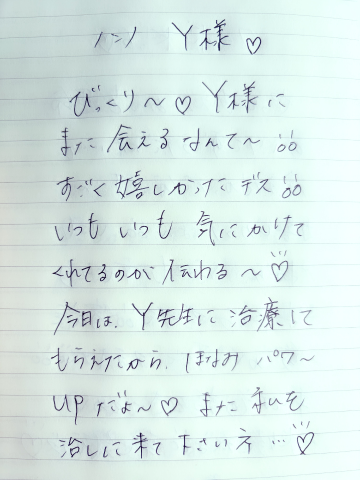 ハンノ Y様♡
びっくり〜♡ Y様に
また会えるなんて〜
すごく嬉しかったデス
いつもいつも気にかけて
くれてるのが伝わる〜♡
今日は、Y先生に治療して
もらえたから、ほなみパワ〜
UPだよ〜♡ また私を
治しに来て下さいネ…♡